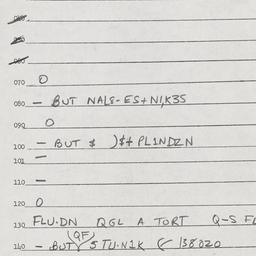 070 O
080 - BUT NALS-ES+NI,K3S
090 O
100 - BUT $ )$+ PL1NDZN
101 -
110 -
120 O
130 FLU.DN QGL A TORT Q-S FL
(QF)
140 - BUT 5 TU.N1K ( 138020